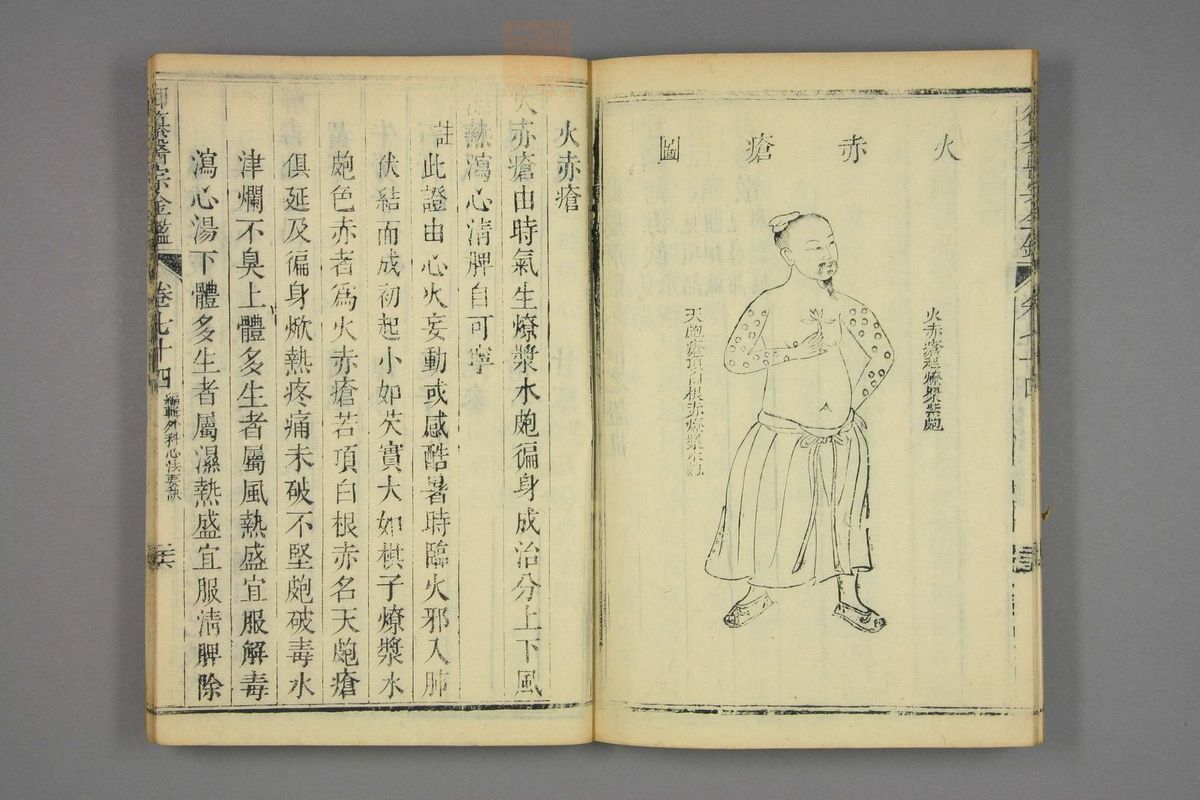 火赤瘡圖
火赤瘡起燎漿紫皰
天皰瘡頂白根赤燎漿水皰
火赤瘡
火赤瘡由時氣生燎漿水皰徧身成治分上下風
熱瀉心清脾自可寧
註此證由心火妄動或感酷暑時臨火邪入肺
伏結而成初起小如芡實大如棋子燎漿水
皰色赤者爲火赤瘡若頂白根赤名天皰瘡
俱延及徧身焮熱疼痛未破不堅皰破毒水
津爛不臭上體多生者屬風熱盛宜服解毒
瀉心湯下體多生者屬濕熱盛宜服清脾除
御纂醫宗金鑑
卷七十四
編輯外科心法要訣